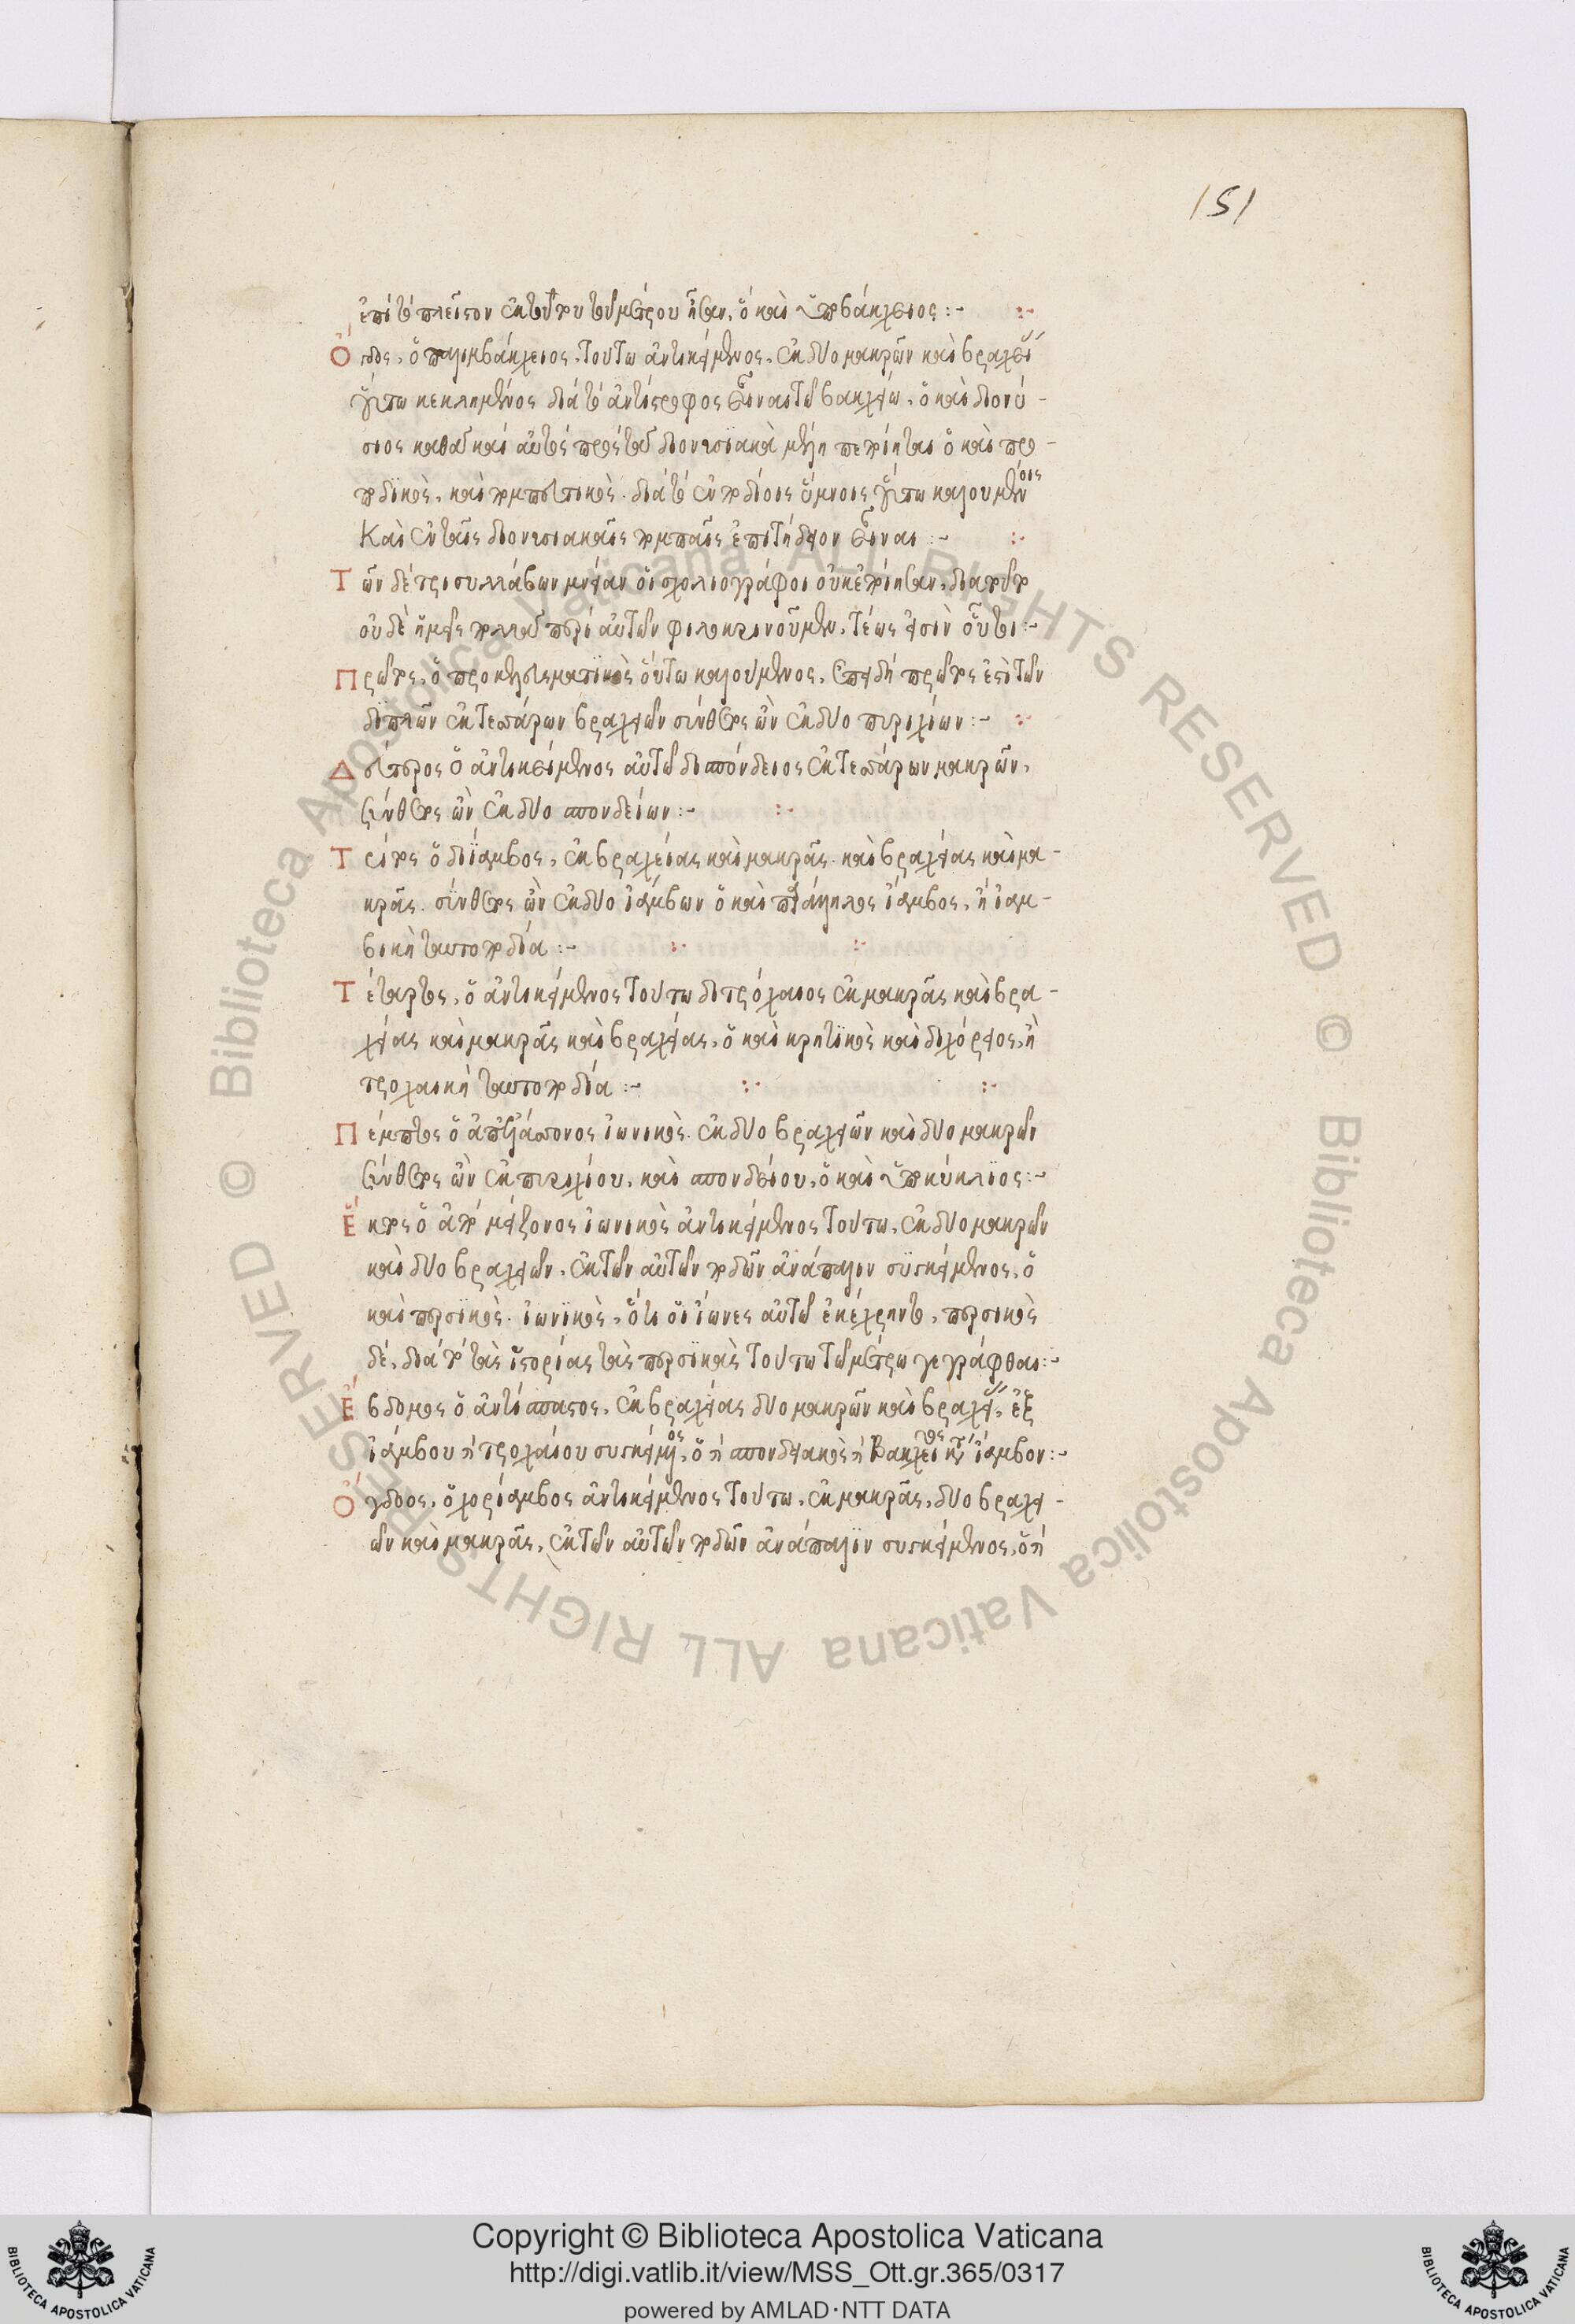 151
ἐπὶ τὸ πλεῖστον ἐκ τούτου τοῦ μέτρου ἦσαν, ὁ καὶ ὑποβάκχειος :-
Ὄγδοος, ὁ παλιμβάκχειος, τούτω ἀντικείμενος, ἐκ δύο μακρῶν καὶ βραχείας
οὕτω κεκλημένος διὰ τὸ ἀντίστροφος εἶναι τῶ βακχείω, ὁ καὶ διονύ-
σιος καθὰ καὶ αὐτὸς πρὸς τὰ διονυσιακὰ μέλη πεποίηται ὁ καὶ
καὶ πομπευτικὸς. διὰ τὸ ἐν τοῖς ὕμνοις οὕτω καλουμένοις
Καὶ ἐν ταῖς διονυσιακαῖς πομπαῖς ἐπιτήδειον εἶναι :-
Τῶν δὲ τρισυλλάβων μνείαν οἱ σχολιογράφοι οὐκ ἐποίησαν, διὰ τοῦτο
οὐδὲ ἡμεῖς πολλὰ περὶ αὐτῶν φιλοκρινοῦμεν, τέως εἰσὶν οὗτοι :-
Πρῶτος, ὁ προκελευσματικὸς οὕτω καλούμενος, ἐπειδὴ πρῶτος ἐστὶ τῶν
διπλῶν ἐκ τεσσάρων βραχειῶν σύνθετος ὢν ἐκ δύο πυριχίων :-
Δεύτερος ὁ ἀντικείμενος αὐτῶ δισπόνδειος ἐκ τεσσάρων μακρῶν,
σύνθετος ὢν ἐκ δύο σπονδείων :-
Τρίτος ὁ διΐαμβος, ἐκ βραχείας καὶ μακρᾶς. καὶ βραχείας καὶ μα-
κρᾶς. σύνθετος ὢν ἐκ δύο ἰάμβων ὁ καὶ παράλληλος ἴαμβος, ἢ ἰαμ-
βικὴ ταυτοποδία :-
Τέταρτος, ὁ ἀντικείμενος τούτω διτρόχαιος ἐκ μακρᾶς καὶ βρα-
χείας καὶ μακρᾶς καὶ βραχείας, ὁ καὶ κρητικὸς καὶ διχόρειος, ἢ
τροχαικὴ ταυτοποδία :-
Πέμπτος ὁ ἀπ' ἐλάσσονος ἰωνικὸς. ἐκ δύο βραχειῶν καὶ δύο μακρῶν
σύνθετος ὢν ἐκ πυριχίου, καὶ σπονδείου, ὁ καὶ ὑποκύκλϊος :-
Ἕκτος ὁ ἀπὸ μείζονος ἰωνικὸς ἀντικείμενος τούτω, ἐκ δύο μακρῶν
καὶ δύο βραχειῶν, ἐκ τῶν αὐτῶν ποδῶν ἀνάπαλιν συγκείμενος, ὁ
καὶ περσϊκὸς. ἰωνϊκὸς, ὅτι οἱ ἴωνες αὐτῶ ἐκέχρηντο, περσικὸς
δὲ, διὰ τὸ τὰς ἱστορίας τὰς περσϊκὰς τούτω τῶ μέτρω γεγράφθαι :-
Ἕβδομος ὁ ἀντίσπαστος, ἐκ βραχείας δύο μακρῶν καὶ βραχείας, ἐξ
ἰάμβου ἢ τροχαίου συγκείμενος, ὁ ἢ σπονδειακὸς ἢ Βακχειος κατ' ἴαμβον :-
Ὄγδοος, ὁ χορίαμβος ἀντικείμενος τούτω, ἐκ μακρᾶς, δύο βραχει-
ῶν καὶ μακρᾶς, ἐκ τῶν αὐτῶν ποδῶν ἀνάπαλϊν συγκείμενος, ὁ ἢ
Copyright © Biblioteca Apostolica Vaticana
http://digi.vatlib.it/view/MSS_Ott.gr.365/0317
powered by AMLAD·NTT DATA